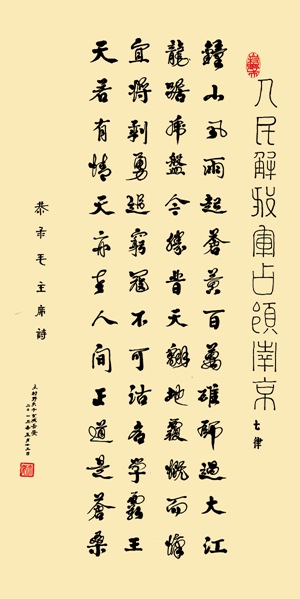 人民解放軍占領南京
七律
鐘山風雨起蒼黃百萬雄師過大江
龍踞虎盤今勝昔天翻地覆慨而慷
宜將剩勇追窮寇不可沽名學霸王
天若有情天亦老人間正道是蒼桑
恭 毛主席詩